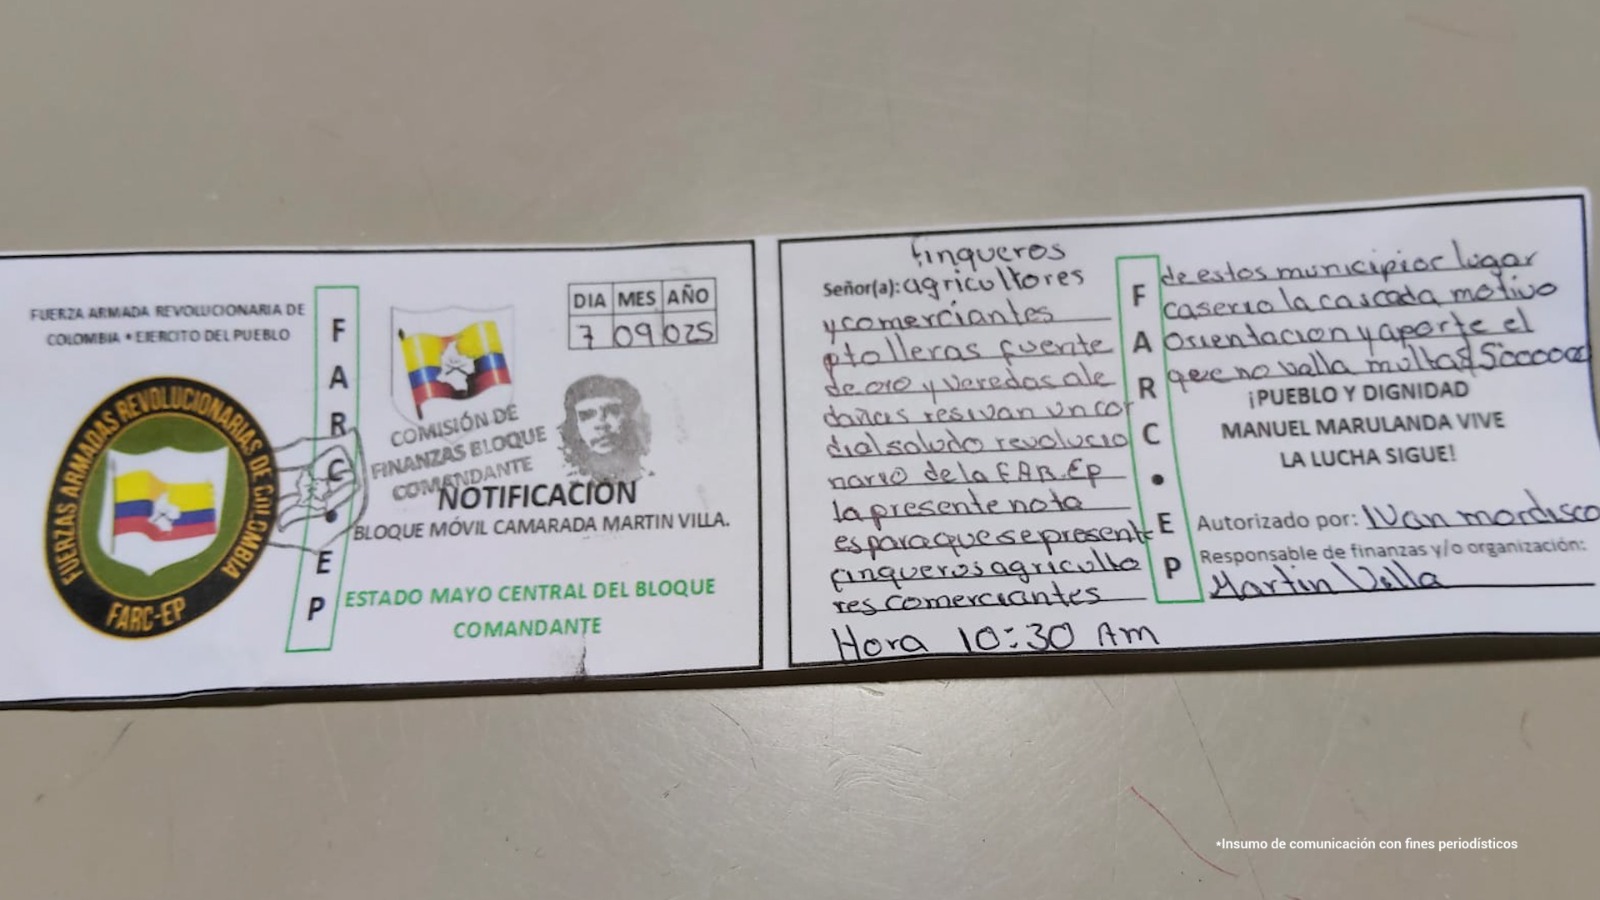 FUERZA ARMADA REVOLUCIONARIA DE
COLOMBIA • EJERCITO DEL PUEBLO
FUERZAS ARMADAS REVOLUCIONARIAS DE COLOMBIA
FARC-EP
F
A
R
C
•
E
P
COMISIÓN DE
FINANZAS BLOQUE
COMANDANTE
DIA MES AÑO
7 09 025
NOTIFICACIÓN
BLOQUE MÓVIL CAMARADA MARTIN VILLA.
ESTADO MAYO CENTRAL DEL BLOQUE
COMANDANTE
finqueros
Señor(a): agricultores
y comerciantes
fuente
de oro y veredas ale
dañas resivan un cor
dial saludo revolucio
nario de la FAR.Ep
la presente nota
es para que se present
finqueros agriculto
res comerciantes
Hora 10:30 Am
F
A
R
C
•
E
P
de estos municipior lugar
caserio la cascada motivo
Orientacion y aporte el
que no valla multa
¡PUEBLO Y DIGNIDAD
MANUEL MARULANDA VIVE
LA LUCHA SIGUE!
Autorizado por: Ivan mordisco
Responsable de finanzas y/o organización:
Martin Villa
*Insumo de comunicación con fines periodísticos